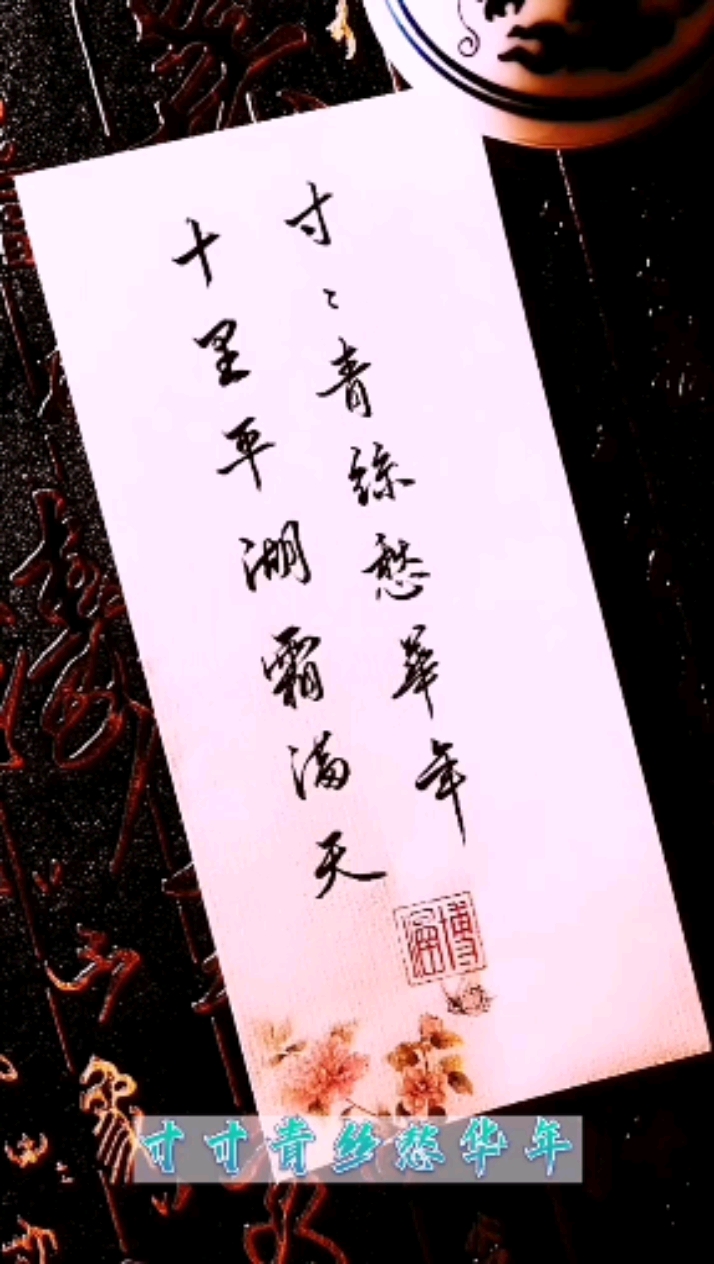 十里平湖霜滿天
寸〻青絲愁華年
博
寸寸青丝愁华年